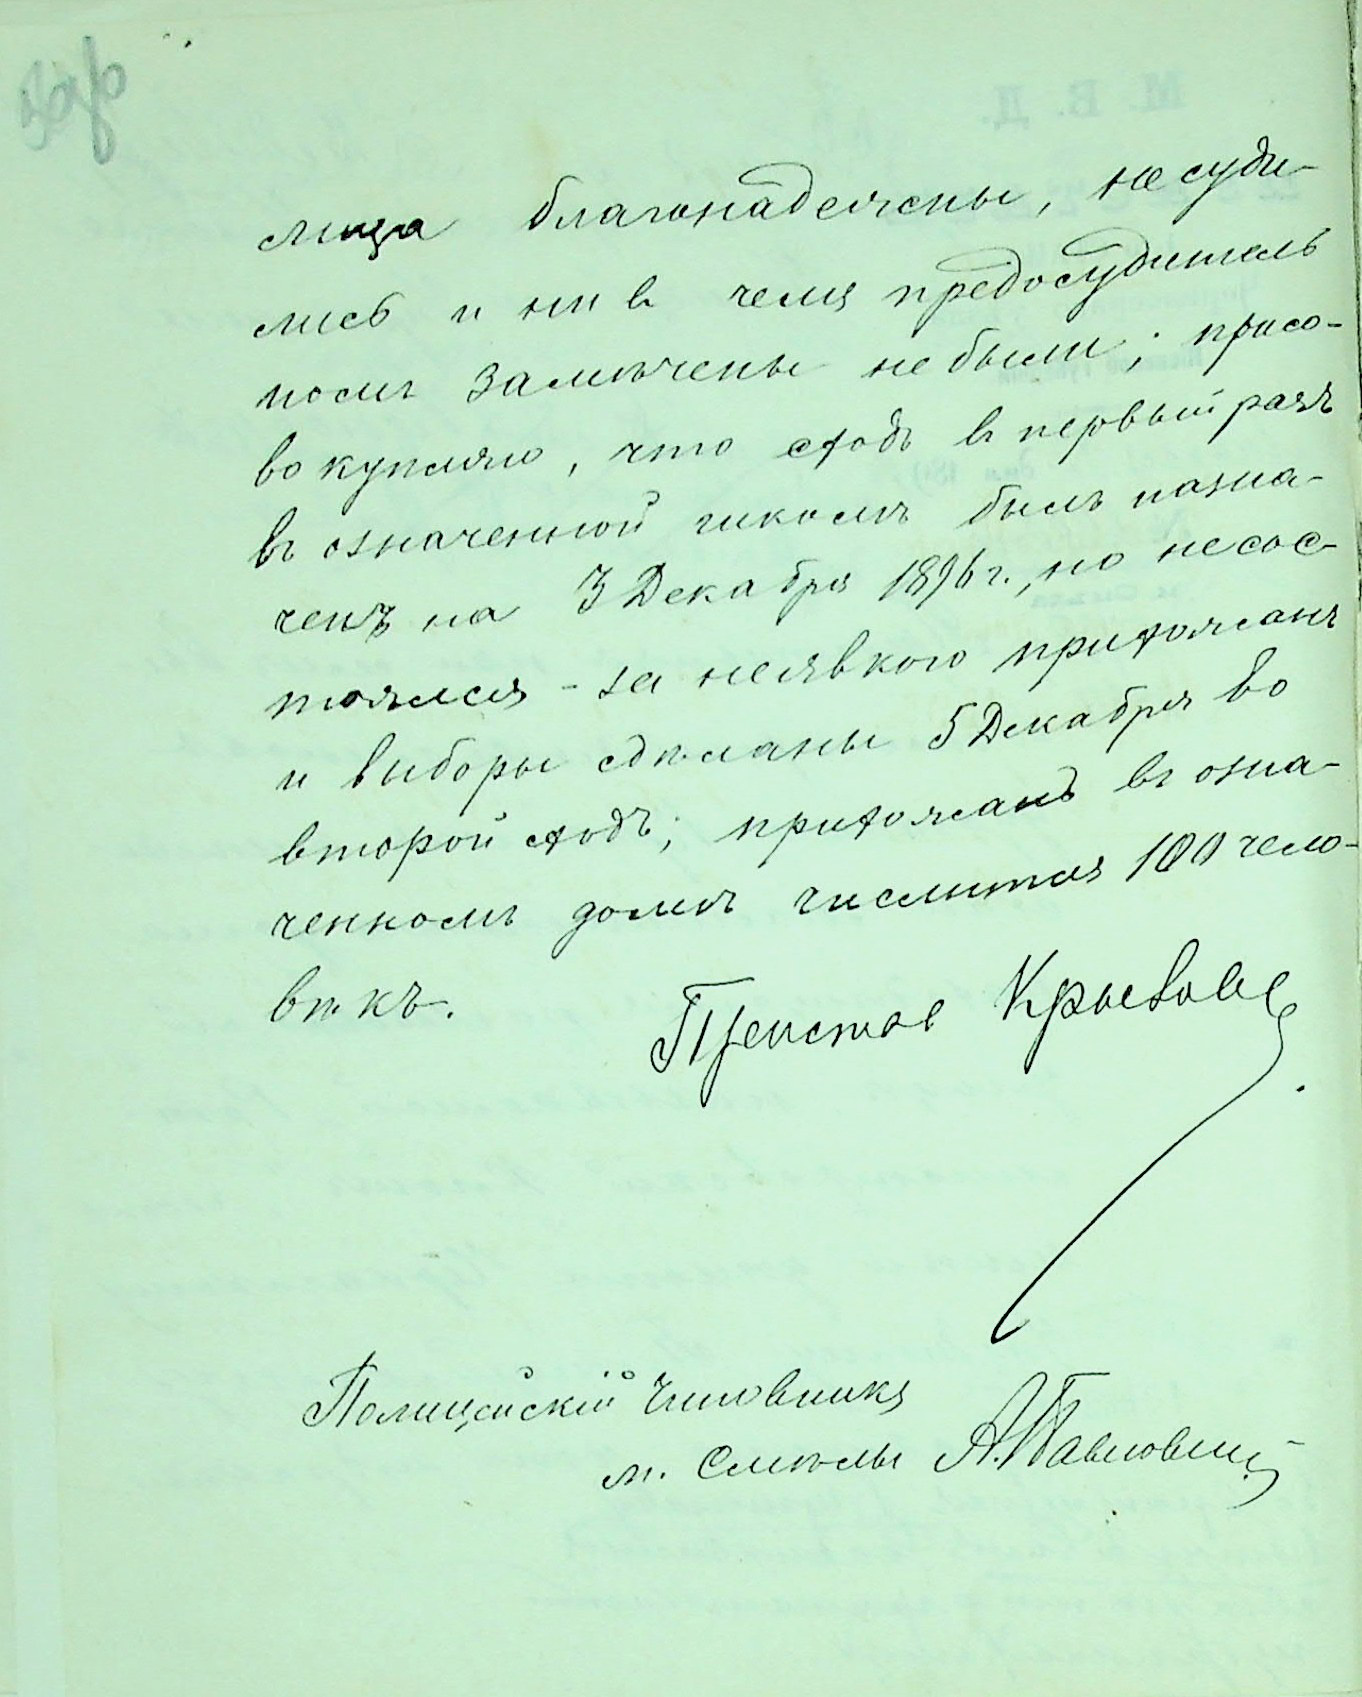 лица благонадежны, не суди-
лись и ни в чемъ предосудитель
номъ замѣчены не были; присо-
вокупляю, что сходъ в первый разъ
въ означенной школѣ былъ назна-
ченъ на 3 Декабря 1896 г., но не сос-
тоялся - за неявкою прихожанъ
и выборы сдѣланы 5 Декабря во
второй сходъ; прихожанъ въ озна-
ченномъ домѣ числится 100 чело-
вѣкъ.
Приставъ
Полицейскій Чиновникъ
м. Смѣлы А. Павлович